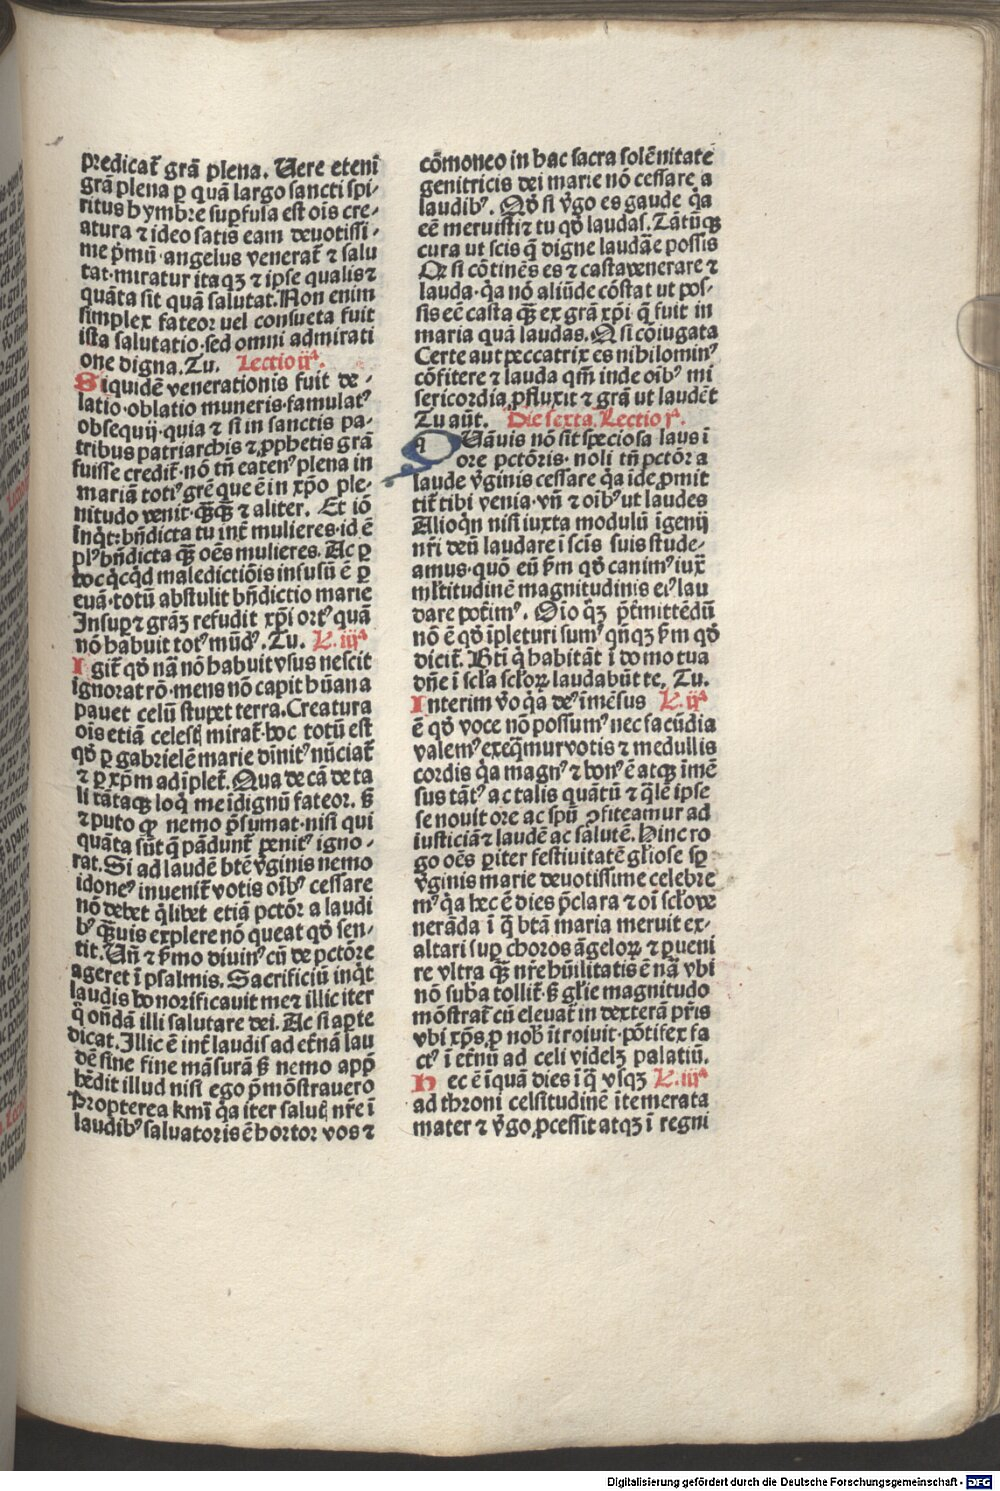 predicat᷑ grā plena. Uere eteni
grā plena ꝑ quā largo sancti spi⸗
ritus hymbre suꝑfusa est oīs cre⸗
atura ⁊ ideo satis eam deuotissi⸗
me p̄mū·angelus venerat᷑ ⁊ salu
tat·miratur itaqꝫ ⁊ ipse qualis ⁊
quāta sit quā salutat. Non enim
simplex fateor uel consueta fuit
ista salutatio·sed omni admirati
one digna. Tu. Lectio ijᵃ.
Siquidē venerationis fuit de⸗
latio·oblatio muneris·famulatꝰ
obsequij·quia ⁊ si in sanctis pa⸗
tribus patriarchis ⁊ ꝓphetis grā
fuisse credit᷑·nō tn̄ eatenꝰ plena in
mariā totiꝰ grē que ē in xp̄o ple⸗
nitudo venit·qꝙ̄qꝫ ⁊ aliter. Et iō
inq̇t: bn̄dicta tu int᷑ mulieres·id ē
plꝰ bn̄dicta qꝫ̄ oēs mulieres. Ac ꝑ
hoc q̇cq̇d maledictiōis insusū ē ꝑ
euā·totū abstulit bn̄dictio marie
Insuꝑ ⁊ grāꝫ refudit xp̄i ortꝰ quā
nō habuit totꝰ mūdꝰ. Tu. L. iijᵃ
Igit᷑ qð nā nō habuit vsus nescit
ignorat rō·mens nō capit hūana
pauet celū stupet terra. Creatura
oīs etiā celesꝭ mirat᷑·hoc totū est
qð ꝑ gabrielē marie dīnitꝰ nūciat᷑
⁊ ꝑ xp̄m adīplet᷑. Qua de cā de ta
li tātaqꝫ loq̇ me īdignū fateor. ß
⁊ puto ꝙ nemo p̄sumat·nisi qui
quāta sūt q̄ pādunt᷑ penitꝰ igno⸗
rat. Si ad laudē btē v̄ginis nemo
idoneꝰ inuenit᷑ votis oībꝰ cessare
nō debet q̇libet etiā pctōr a laudi
bꝰ qꝫ̄uis explere nō queat qð sen⸗
tit. Un̄ ⁊ p̄mo diuinꝰ cū de pctōre
ageret ī psalmis. Sacrificiū inq̇t
laudis honorificauit me ⁊ illic iter
q̊ ondā illi salutare dei. Ac si aꝑte
dicat. Illic ē int᷑ laudis ad et᷑nā lau
dē sine fine māsurā ß nemo app̄
hēdit illud nisi ego p̄mōstrauero
Propterea kmī q̇a iter salutꝭ nr̄e ī
laudibꝰ saluatoris ē hortor vos ⁊
cōmoneo in hac sacra solēnitate
genitricis dei marie nō cessare a
laudibꝰ. Qð si v̄go es gaude q̇a
eē meruisti ⁊ tu qð laudas. Tātūqꝫ
cura ut scis q̄ digne laudāe possis
Qꝫ si cōtinēs es ⁊ casta venerare ⁊
lauda·q̇a nō aliūde cōstat ut pos⸗
sis eē casta qꝫ̄ ex grā xp̄i q̄ fuit in
maria quā laudas. Q si cōiugata
Certe aut peccatrix es nihilominꝰ
cōfitere ⁊ lauda qm̄ inde oībꝰ mi
sericordia ꝓfluxit ⁊ grā ut laudēt
Tu aūt. Die sexta. Lectio jᵃ.
Quāuis nō sit speciosa laus ī
ore pctōris·noli tn̄ pctōr a
laude v̄ginis cessare q̇a ide ꝓmit
tit᷑ tibi venia·vn̄ ⁊ oībꝰ ut laudes
Alioq̇n nisi iuxta modulū īgenij
nr̄i deū laudare ī scīs suis stude⸗
amus·quō eū ẜm qð canimꝰ iux̄
ml̄titudinē magnitudinis eiꝰ lau
dare poterimꝰ. Oīo q̇ꝫ p̄t᷑mittēdū
nō ē qð īpleturi sumꝰ qn̄qꝫ ẜm qð
dicit᷑. Bt̄i q̇ habitāt ī domo tua
dn̄e ī scl̄a scl̄oꝝ laudabūt te. Tu.
Interim v̊o q̇a deꝰ īmēsus L. ijᵃ
ē qð voce nō possumꝰ nec facūdia
valemꝰ exeq̇mur votis ⁊ medullis
cordis q̇a magnꝰ ⁊ bonꝰ ē atqꝫ īmē
sus tātꝰ ac talis quātū ⁊ q̄lē ipse
se nouit ore ac spū ꝓfiteamur ad
iusticiā ⁊ laudē ac salutē. Hinc ro
go oēs ꝑiter festiuitatē gl̄iose sꝑ
v̄ginis marie deuotissime celebre
mꝰ q̇a hec ē dies p̄clara ⁊ oī scl̄o ve
nerāda ī q̄ btā maria meruit ex⸗
altari suꝑ choros āgeloꝝ ⁊ ꝑueni
re vltra qꝫ̄ nr̄e hūilitatis ē nā vbi
nō suba tollit᷑·ß gl̄ie magnitudo
mōstrat᷑ cū eleuat᷑ in dexterā pr̄is
vbi xp̄s ꝓ nob̄ ītroiuit·pōtifex fa
ctꝰ ī et᷑nū ad celi videlꝫ palatiū.
Hec ē īquā dies ī q̄ vsqꝫ L. iijᵃ
ad throni celsitudinē ītemerata
mater ⁊ v̄go ꝓcessit atqꝫ ī regni
Digitalisierung gefördert durch die Deutsche Forschungsgemeinschaft - DFG